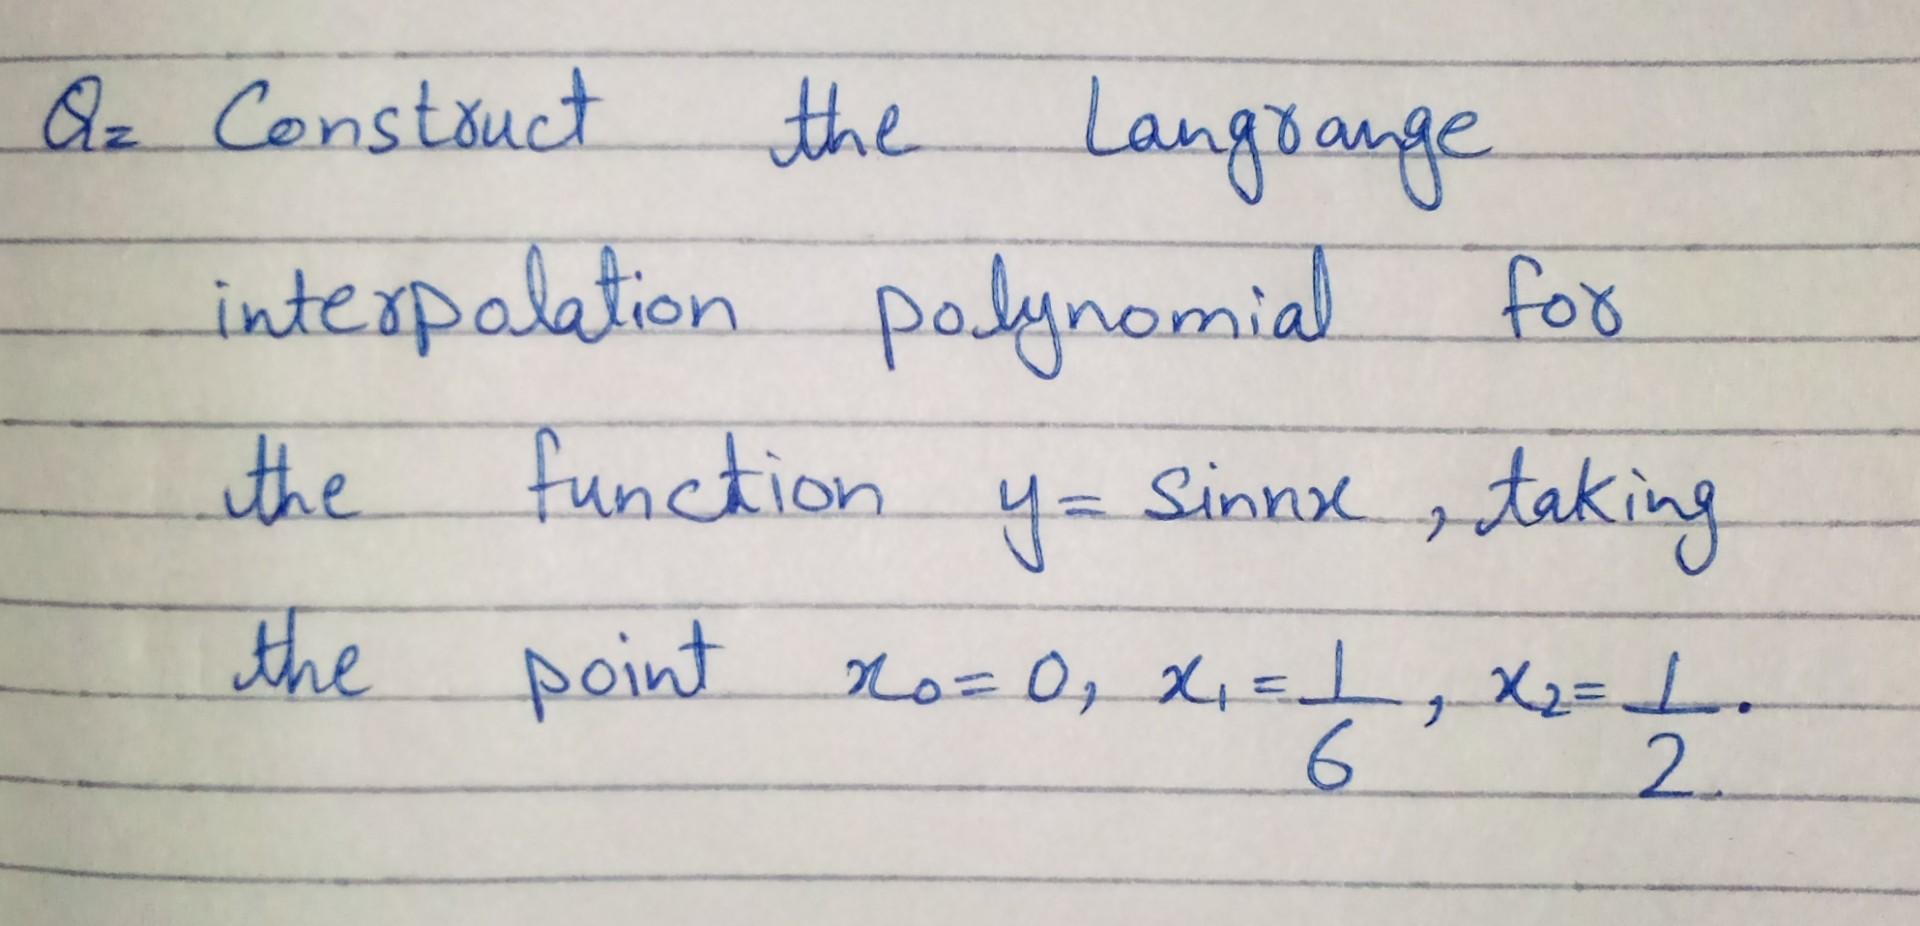 Q= Construct the Langrange
interpolation polynomial for
the function y= sinnx, taking
the point x₀=0, x₁=1/6, x₂=1/2.